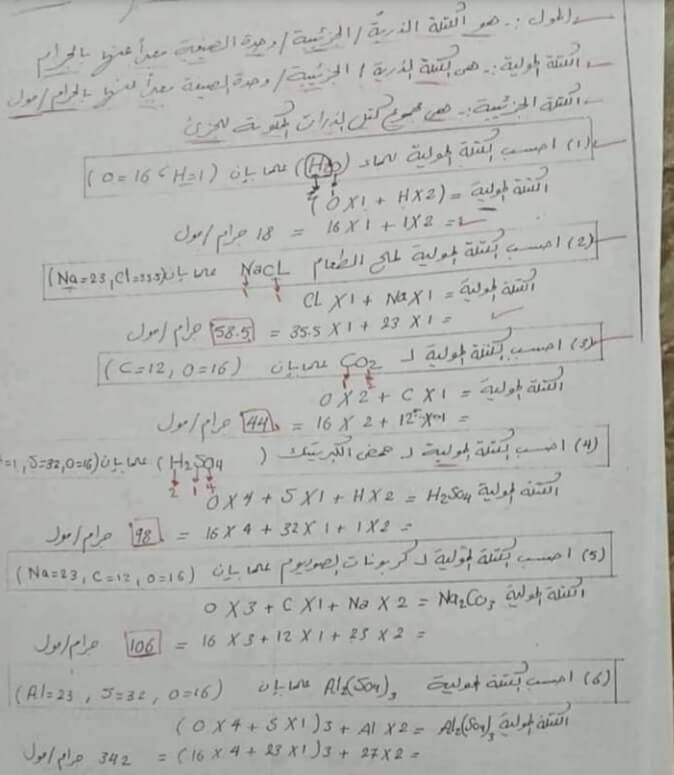 المول :- هو الكتلة الذرية / الجزيئية / وحدة الصيغة معبراً عنها بالجرام
الكتلة المولية :- هي الكتلة الذرية / الجزيئية / وحدة الصيغة معبراً عنها بالجرام / مول
الكتلة الجزيئية :- هي مجموع كتل الذرات المكونة للجزئ
(1) احسب الكتلة المولية للماء (H2O) علما بان (O=16 ، H=1)
الكتلة المولية = (O X 1 + H X 2)
= 16 X 1 + 1 X 2 = 18 جرام / مول
(2) احسب الكتلة المولية لملح الطعام NaCL علما بان (Na=23, Cl=35.5)
الكتلة المولية = CL X 1 + Na X 1
= 35.5 X 1 + 23 X 1 = 58.5 جرام / مول
(3) احسب الكتلة المولية لـ CO2 علما بان (C=12, O=16)
الكتلة المولية = O X 2 + C X 1
= 16 X 2 + 12 X 1 = 44 جرام / مول
(4) احسب الكتلة المولية لـ حمض الكبريتيك (H2SO4) علما بان (=1, S=32, O=16)
الكتلة المولية H2SO4 = O X 4 + S X 1 + H X 2
= 16 X 4 + 32 X 1 + 1 X 2 = 98 جرام / مول
(5) احسب الكتلة المولية لـ كربونات الصوديوم علما بان (Na=23, C=12, O=16)
الكتلة المولية Na2CO3 = O X 3 + C X 1 + Na X 2
= 16 X 3 + 12 X 1 + 23 X 2 = 106 جرام / مول
(6) احسب الكتلة المولية Al2(SO4)3 علما بان (Al=23, S=32, O=16)
الكتلة المولية Al2(SO4)3 = (O X 4 + S X 1)3 + Al X 2
= (16 X 4 + 23 X 1)3 + 27 X 2 = 342 جرام / مول